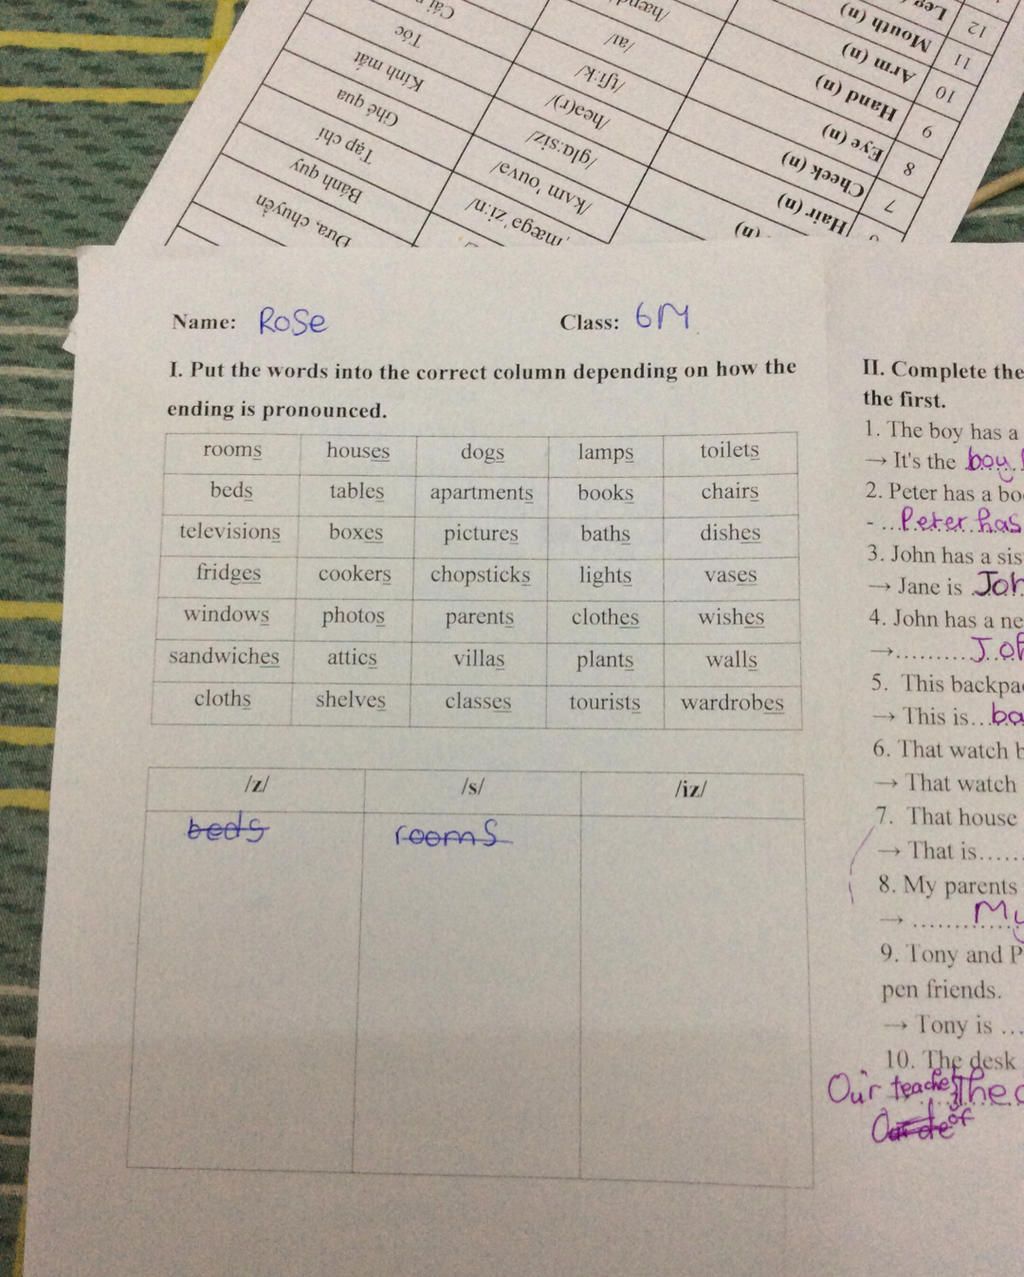 12 Leg
11 Mouth (n)
10 Arm (n)
9 Hand (n)
8 Eye (n) /aɪ/
7 Cheek (n) /tʃi:k/
Hair (n) /heə(r)/ Tóc
(n) /glɑ:siz/ Kính mắt
/kʌm 'ouvə/ Ghé qua
Tạp chí
Bánh quy
Đưa, chuyền
Name: Rose Class: 6M
I. Put the words into the correct column depending on how the
ending is pronounced.
rooms houses dogs lamps toilets
beds tables apartments books chairs
televisions boxes pictures baths dishes
fridges cookers chopsticks lights vases
windows photos parents clothes wishes
sandwiches attics villas plants walls
cloths shelves classes tourists wardrobes
/z/ /s/ /iz/
beds rooms
II. Complete the
the first.
1. The boy has a
→ It's the boy
2. Peter has a bo
- ...Peter has
3. John has a sis
→ Jane is Joh
4. John has a ne
→.......... Joh
5. This backpa
→ This is...ba
6. That watch b
→ That watch
7. That house
→ That is......
8. My parents
→ ............ My
9. Tony and P
pen friends.
→ Tony is ...
10. The desk
Our teacher The d
of